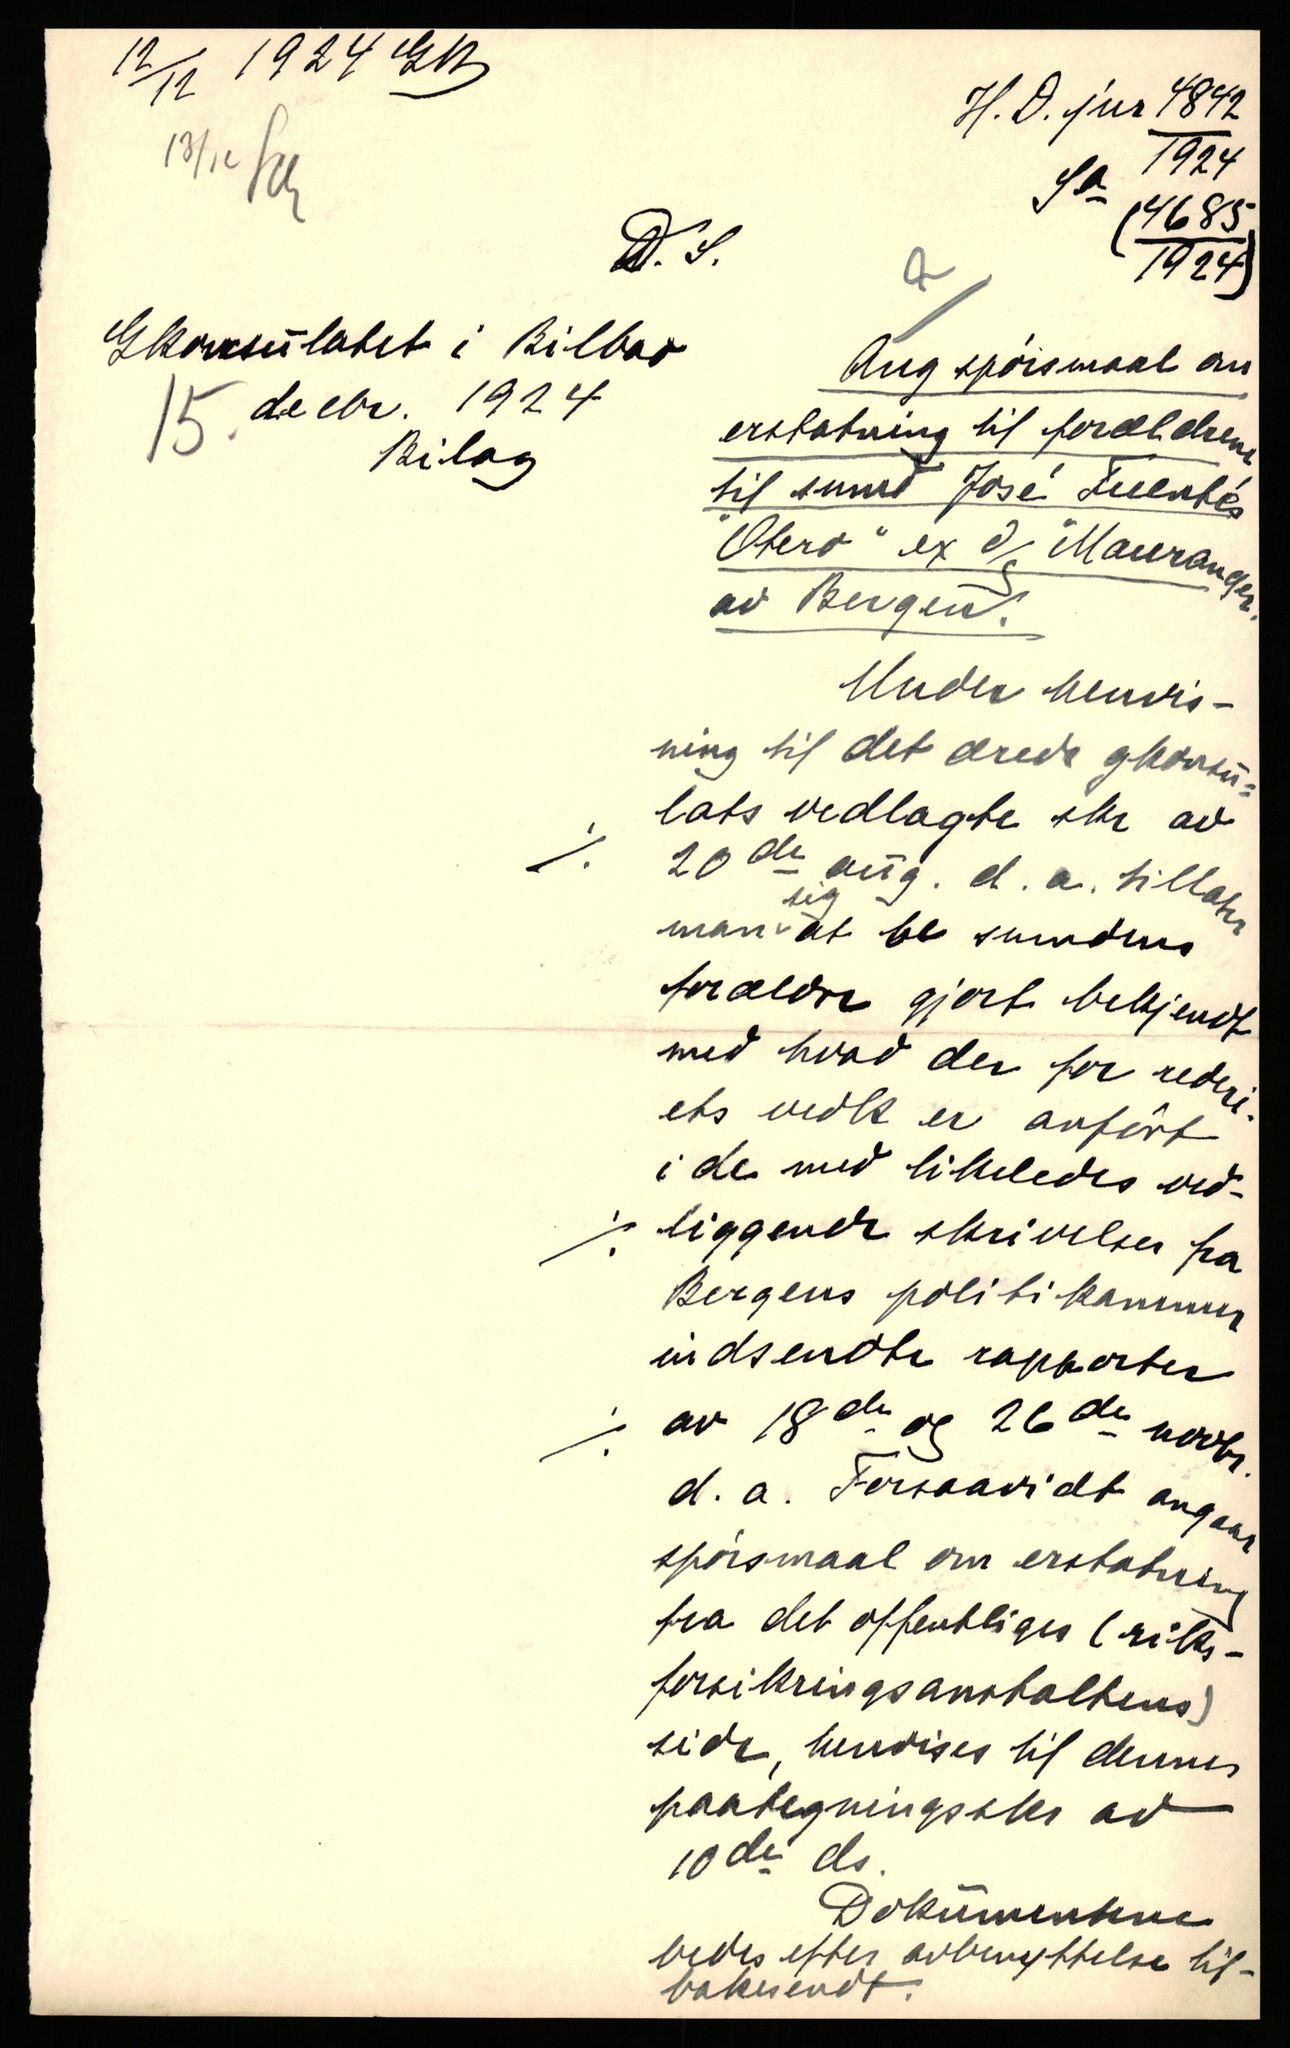 12/12 1924
13/12
H. D. jnr 4842/1924
Sa (4685/1924)
D. S.
Gkonsulatet i Bilbao
15. decbr. 1924
Bilag
Ang spörsmaal om
erstatning til forældrene
til smnd José Fuentés
"Otero" ex d/s "Mauranger"
av Bergen.
Under henvis-
ning til det ærede gkonsu-
lats vedlagte skr av
./. 20de aug. d. a. tillater
man sig at be smndens
forældre gjort bekjendt
med hvad der for rederi-
ets vedk er anfört
i de med likeledes ved-
./. liggende skrivelser fra
Bergens politikammer
indsendte rapporter
./. av 18de og 26de novbr.
d. a. Forsaavidt angaar
spörsmaal om erstatning
fra det offentliges (riks-
forsikringsanstaltens)
side, henvises til dennes
paategningsskr av
10de ds.
Dokumentene
bedes efter avbenyttelse til-
bakesendt.